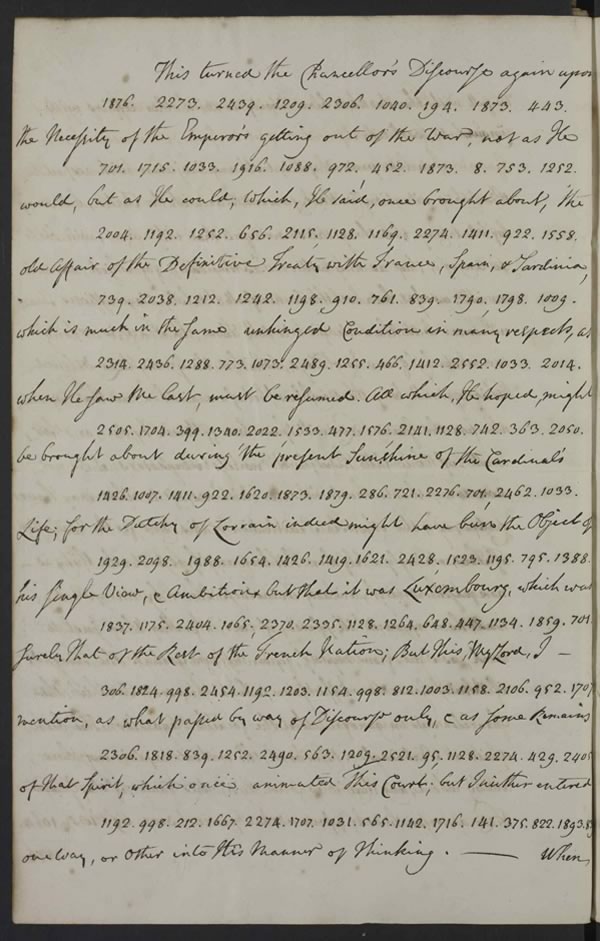 This turned the Chancellor's Discourse again upon
1876. 2273. 2439. 1209. 2306. 1040. 194. 1873. 443.
the Necessity of the Emperor's getting out of the War, not as He
701. 1715. 1033. 1916. 1088. 972. 452. 1873. 8. 753. 1252.
would, but as He could, which, He said, once brought about, the
2004. 1192. 1252. 656. 2115. 1128. 1169. 2274. 1411. 922. 1558.
old Affair of the Definitive Treaty with France, Spain, & Sardinia,
739. 2038. 1212. 1242. 1198. 910. 761. 839. 1790. 1798. 1009.
which is much in the same unhinged Condition in many respects, as
2314. 2436. 1288. 773. 1073. 2489. 1255. 466. 1412. 2552. 1033. 2014.
when He saw Me last, must be resumed. All which, He hoped, might
2505. 1704. 399. 1340. 2022. 1533. 477. 1576. 2141. 1128. 742. 363. 2050.
be brought about during the present Sunshine of the Cardinal's
1426. 1007. 1411. 922. 1620. 1873. 1879. 286. 721. 2276. 701. 2462. 1033.
Life; for the Dutchy of Lorrain indeed might have been the Object of
1929. 2098. 1988. 1654. 1426. 1419. 1621. 2428. 1523. 1195. 795. 1388.
his single View, & Ambition; but that it was Luxembourg, which was
1837. 1175. 2404. 1065. 2370. 2335. 1128. 1264. 648. 447. 1134. 1859. 701
surely That of the Rest of the French Nation; But This, My Lord, I —
306. 1824. 998. 2454. 1192. 1203. 1154. 998. 812. 1003. 1158. 2106. 952. 1707
mention, as what passed by way of Discourse only, & as some Remains
2306. 1818. 839. 1252. 2490. 563. 1209. 2521. 95. 1128. 2274. 429. 2405
of that Spirit, which once animated This Court; but I neither entered
1192. 998. 212. 1667. 2274. 1707. 1031. 565. 1142. 1716. 141. 375. 822. 1893.
one way, or other into His Manner of Thinking. — When